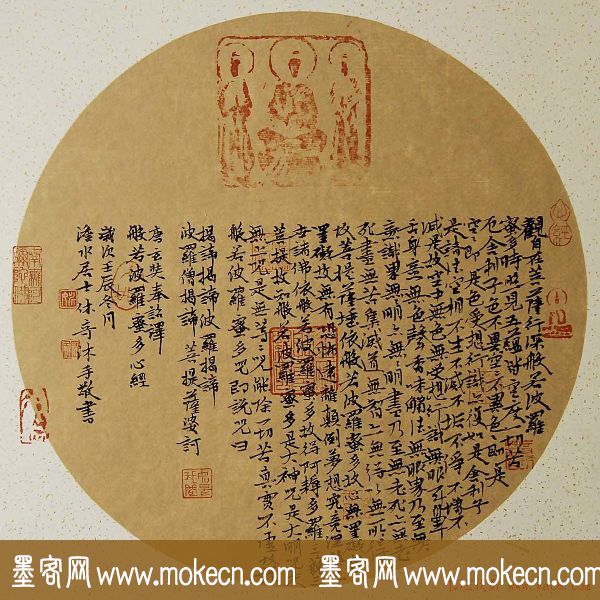 觀自在菩薩行深般若波羅
蜜多時照見五蘊皆空度一切苦
厄舍利子色不異空空不異色色即是
空空即是色受想行識亦復如是舍利子
是諸法空相不生不滅不垢不淨不增不
減是故空中無色無受想行識無眼耳鼻
舌身意無色聲香味觸法無眼界乃至無
意識界無無明亦無無明盡乃至無老死亦無老
死盡無苦集滅道無智亦無得以無所
故菩提薩埵依般若波羅蜜多故心無罣礙
罣礙故無有恐怖遠離顛倒夢想究竟涅
世諸佛依般若波羅蜜多故得阿耨多羅三藐
菩提故知般若波羅蜜多是大神咒是大明咒
無上咒是無等咒能除一切苦真實不虛故
般若波羅蜜多咒即說咒曰
揭諦揭諦波羅揭諦
波羅僧揭諦 菩提薩婆訶
唐玄奘奉詔譯
般若波羅蜜多心經
歲次壬辰冬月
居士休奇沐手敬書
墨客网 www.mokecn.com 墨客网 www.mokecn.com